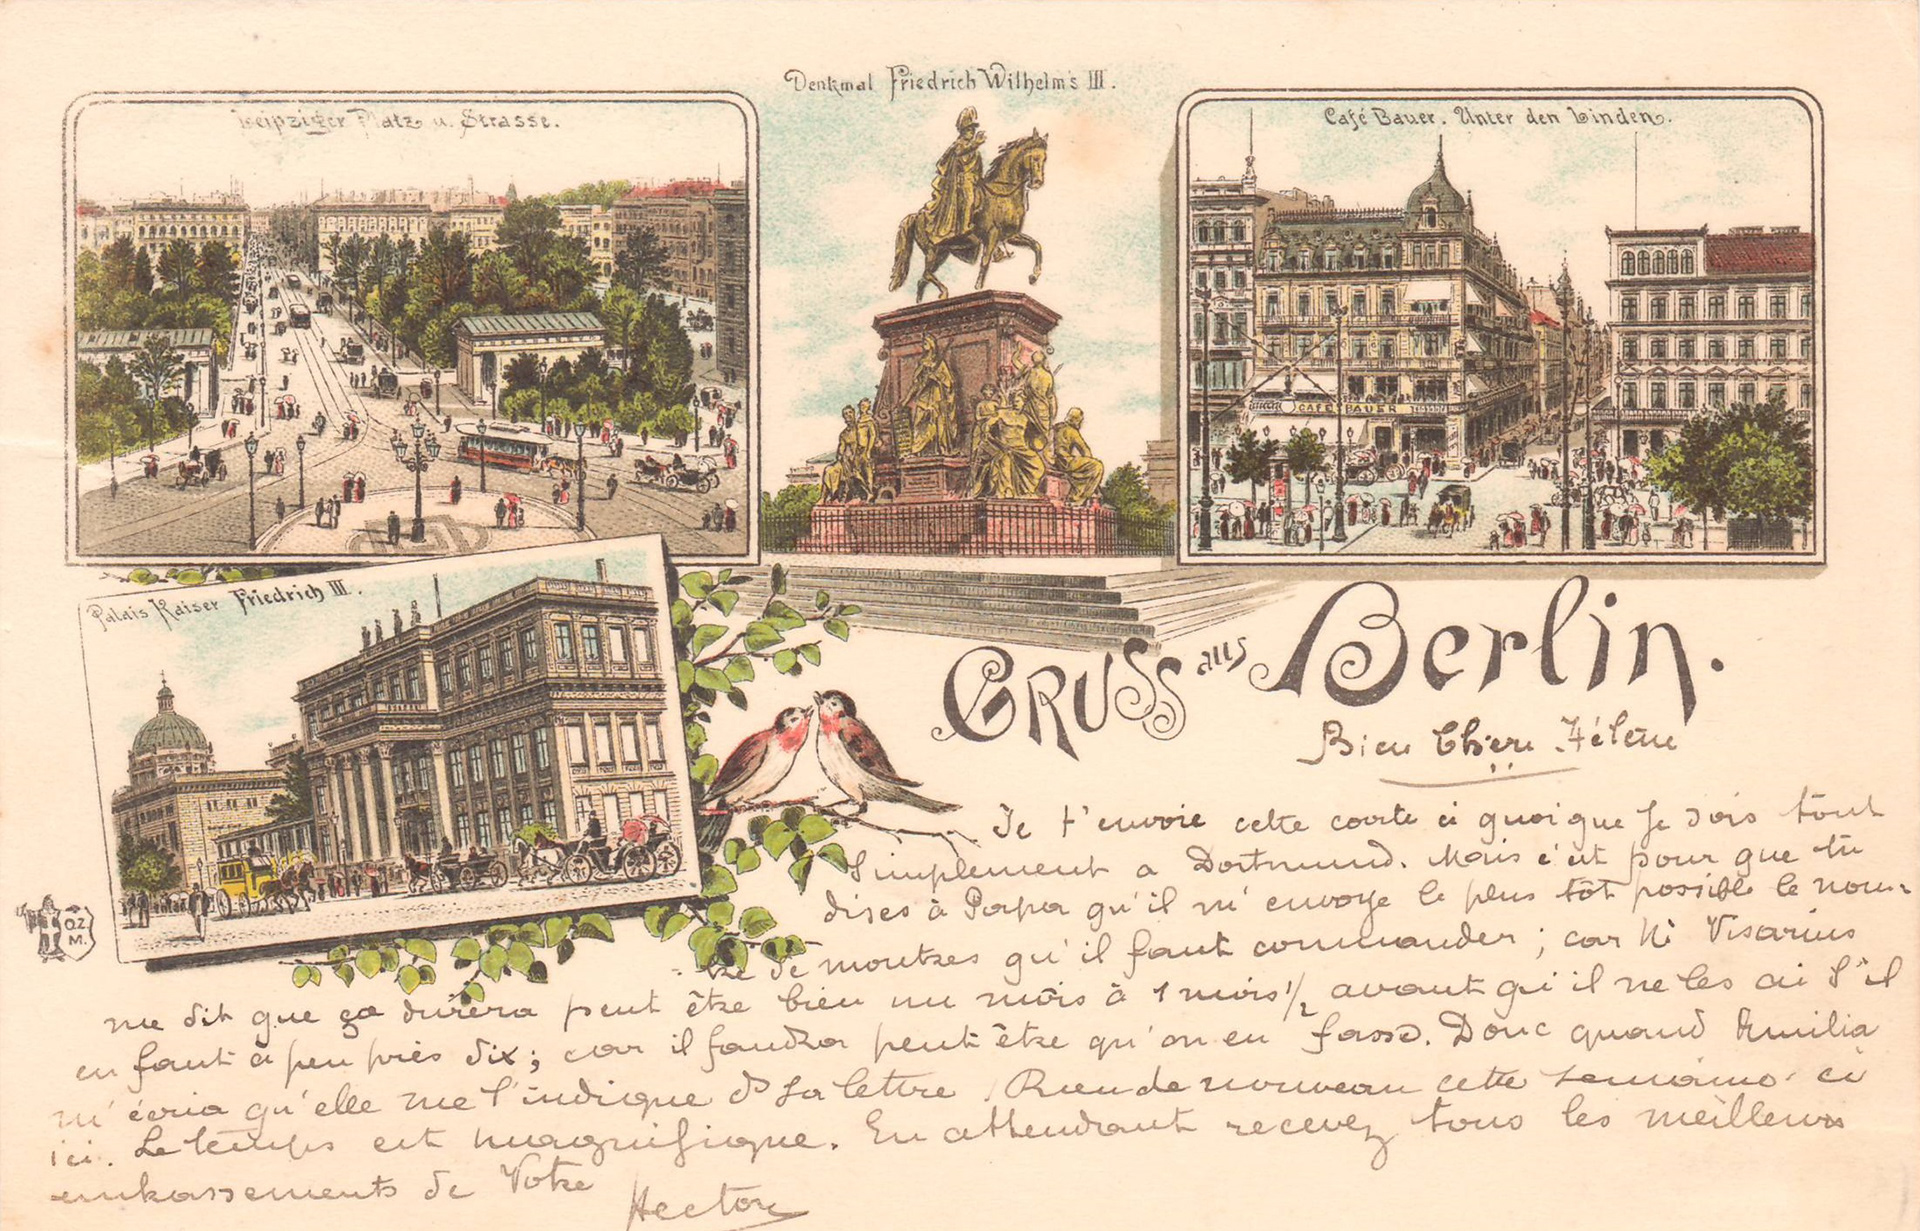 Denkmal Friedrich Wilhelm's III.
Leipziger Platz u. Strasse.
Café Bauer. Unter den Linden.
CAFÉ BAUER
Palais Kaiser Friedrich III.
Gruss aus Berlin.
O.Z.
M.
Bien Chère Hélène
Je t'envoie cette carte ci quoique je sois tout
simplement a Dortmund. Mais c'est pour que tu
dises à Papa qu'il m'envoye le plus tôt possible le nom-
bre de montres qu'il faut commander ; car Mr Visarius
me dit que ça durera peut être bien un mois à 1 mois 1/2 avant qu'il ne les ai s'il
en faut à peu près dix ; car il faudra peut être qu'on en fasse. Donc quand Emilia
m'écrira qu'elle me l'indique ds sa lettre. Rien de nouveau cette semaine ci
ici. Le temps est magnifique. En attendant recevez tous les meilleurs
embrassements de Votre
Hector